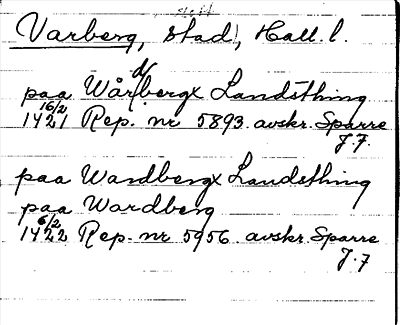 Varberg, stad, Hall. l.
paa Wårdbergx Landsthing
16/2 1421 Rep. nr 5893 avskr. Sparre
J.F.
paa Wardbergx Landsthing
paa Wardberg
6/2 1422 Rep. nr 5956 avskr. Sparre
J.F.